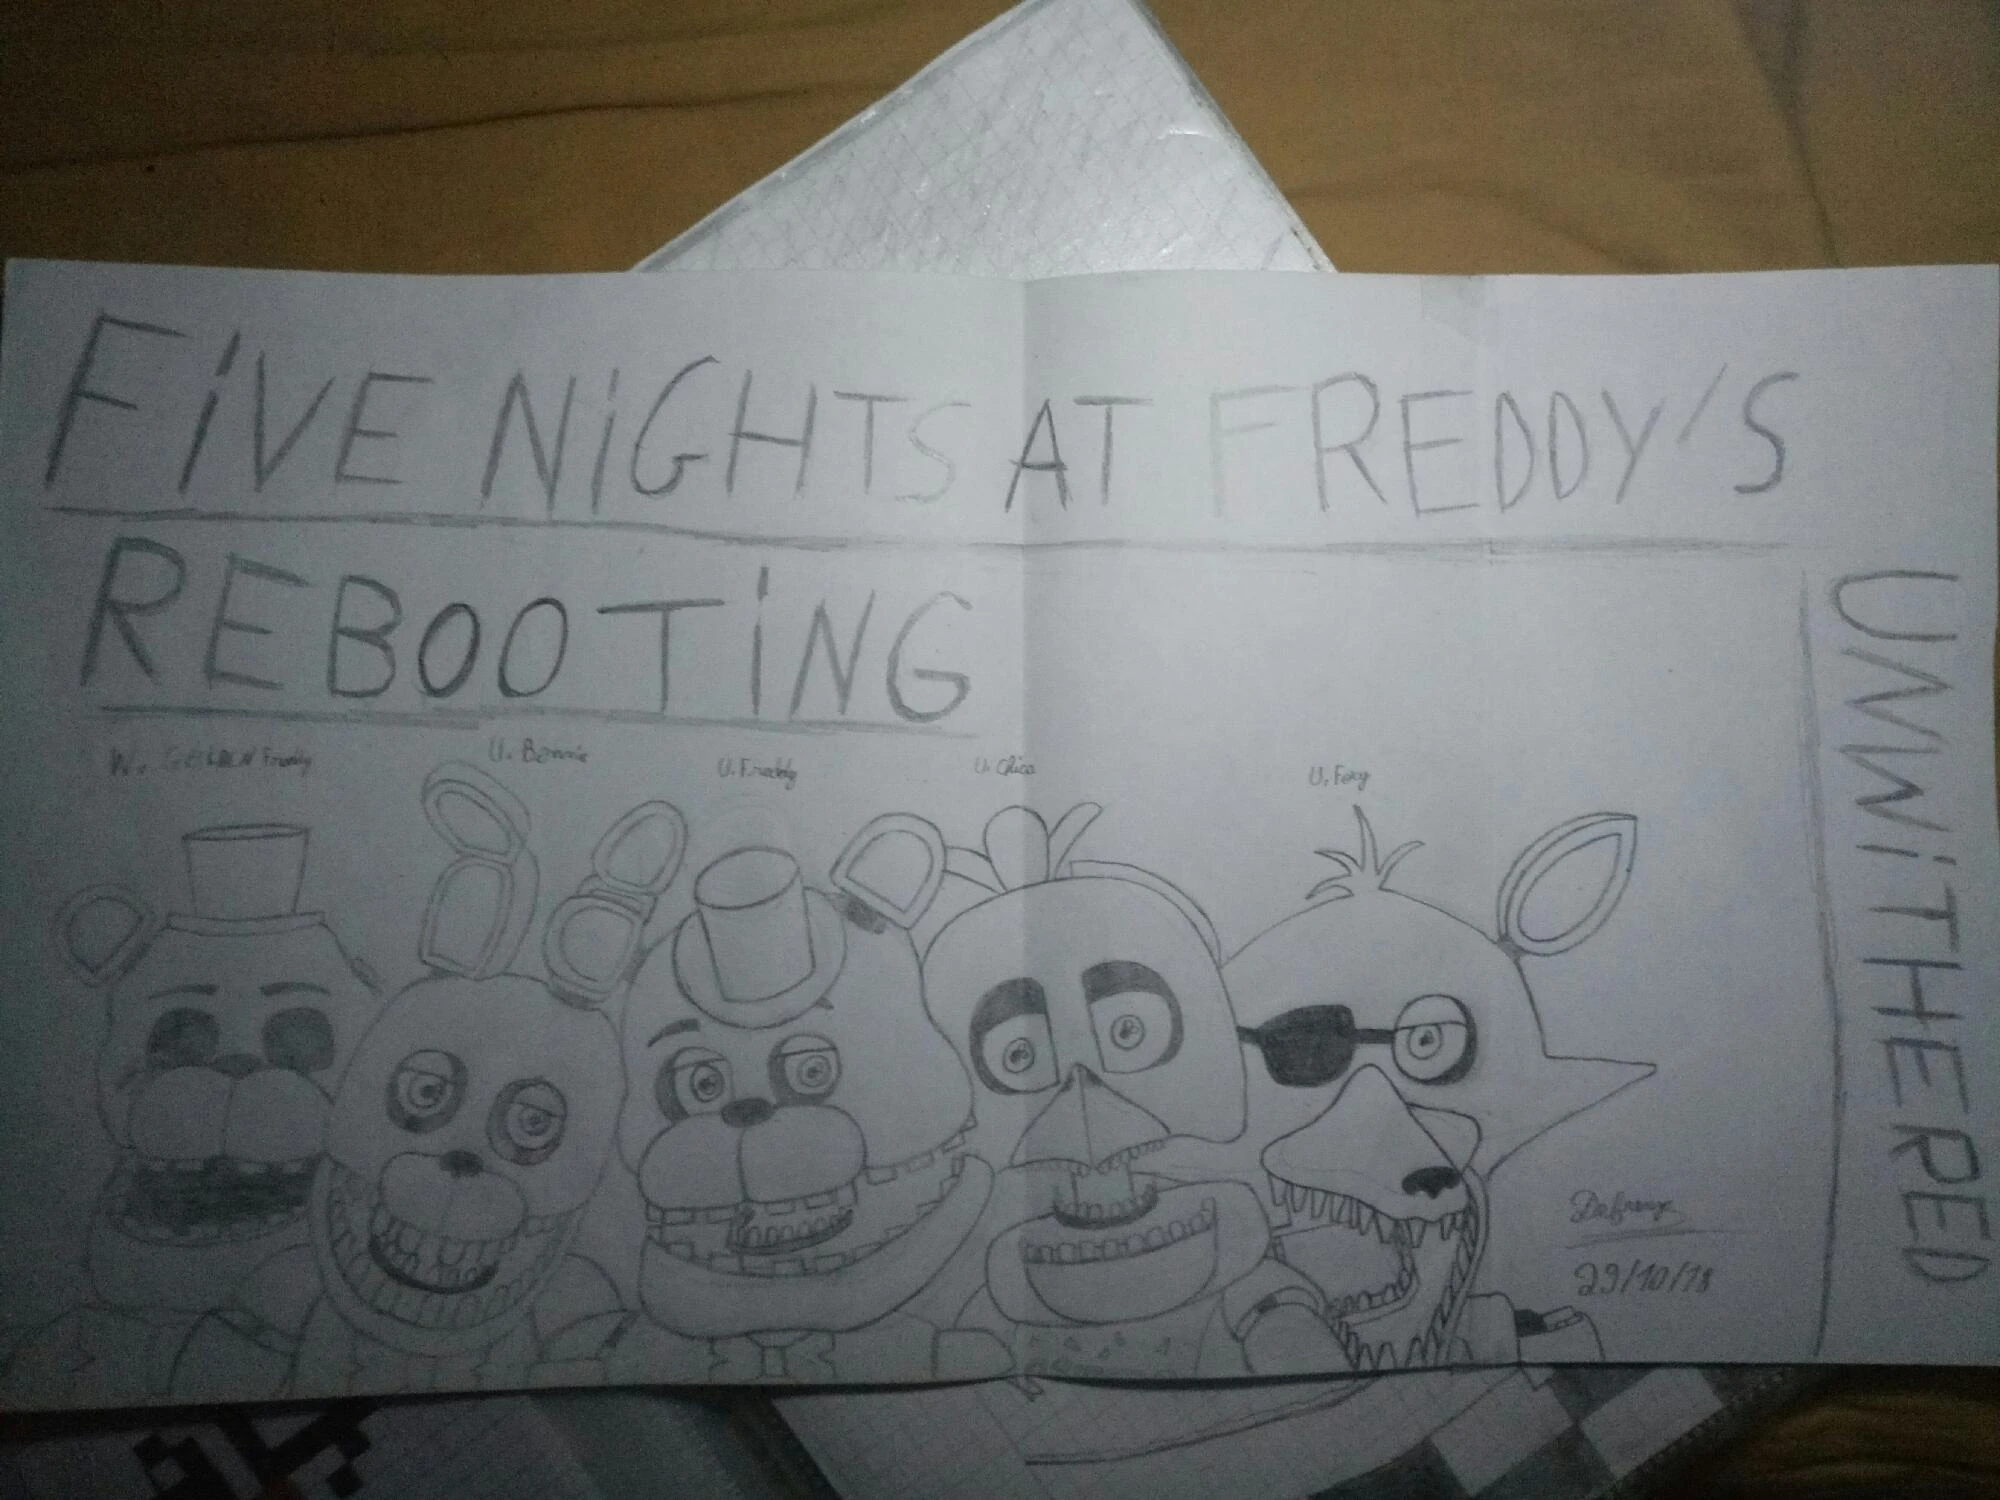 FiVE NiGHTS AT FREDDY'S
REBOOTiNG
UNWiTHERED
W. GOLDEN Freddy
U. Bonnie
U. Freddy
U. Chica
U. Foxy
29/10/18